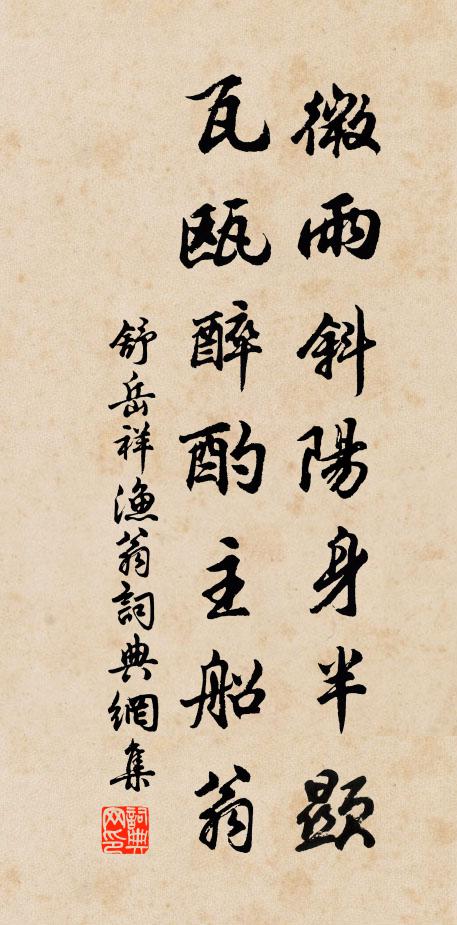 微雨斜陽身半顯
瓦甌醉酌主船翁
舒岳祥漁翁詞典網集
詞典网印